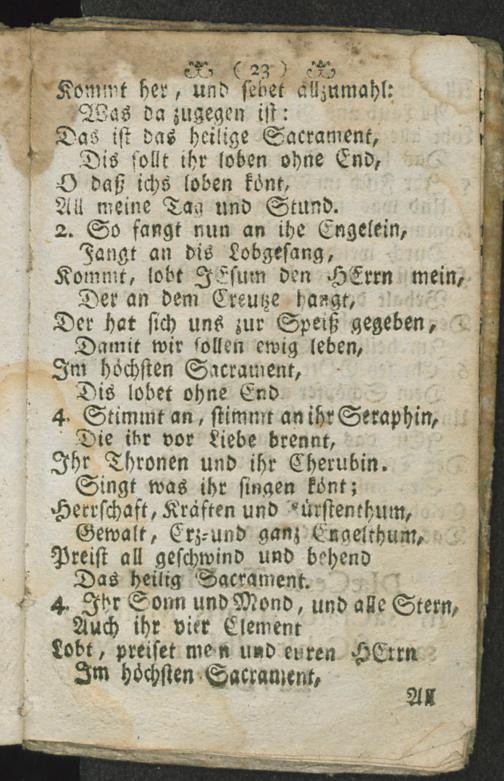 ( 23 )
Kommt her, und sehet allzumahl:
Was da zugegen ist:
Das ist das heilige Sacrament,
Dis sollt ihr loben ohne End,
O daß ichs loben könt,
All meine Tag und Stund.
2. So fangt nun an ihr Engelein,
Fangt an dis Lobgesang,
Kommt, lobt JEsum den HErrn mein,
Der an dem Creutze hangt,
Der hat sich uns zur Speiß gegeben,
Damit wir sollen ewig leben,
Im höchsten Sacrament,
Dis lobet ohne End
4. Stimmt an, stimmt an ihr Seraphin,
Die ihr vor Liebe brennt,
Ihr Thronen und ihr Cherubin.
Singt was ihr singen könt;
Herrschaft, Kräften und Fürstenthum,
Gewalt, Erz-und ganz Engelthum,
Preist all geschwind und behend
Das heilig Sacrament.
4. Ihr Sonn und Mond, und alle Stern,
Auch ihr vier Element
Lobt, preiset mein und euren HErrn
Im höchsten Sacrament,
All